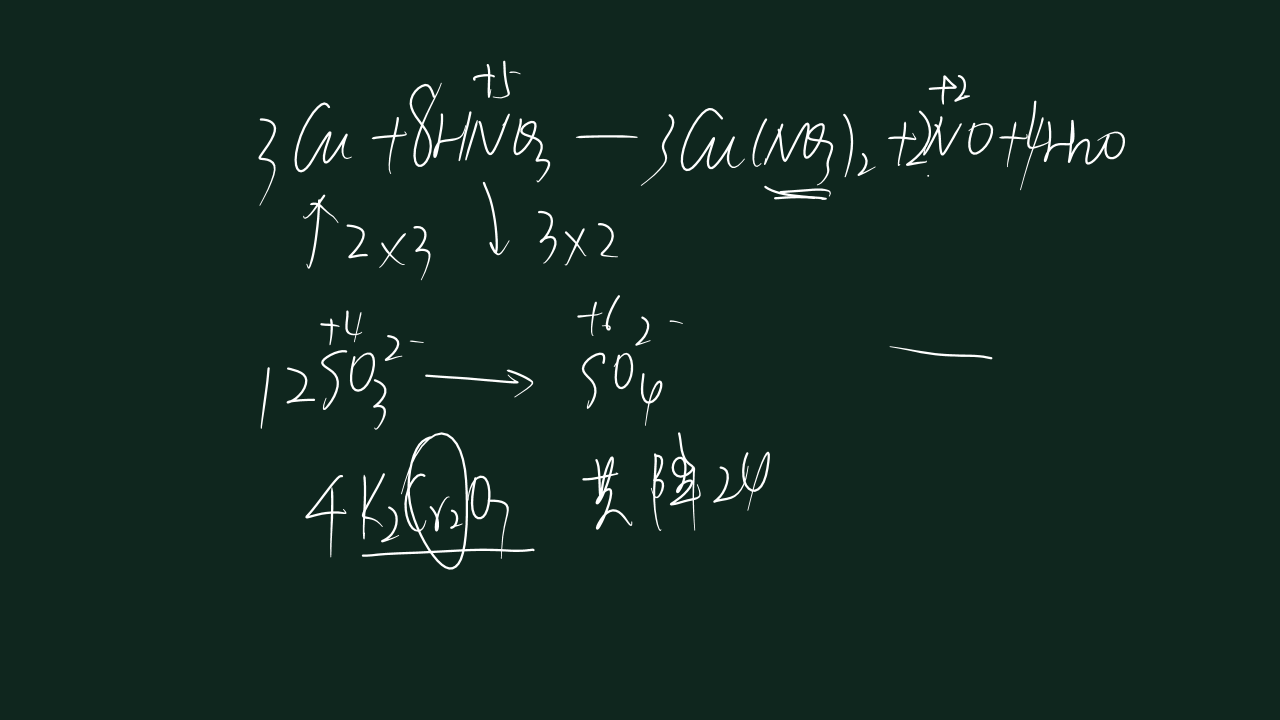 +5 +2
3Cu+8HNO₃—3Cu(NO₃)₂+2NO+4H₂O
↑2×3 ↓3×2
+4 +6
12SO₃²⁻→SO₄²⁻
4K₂Cr₂O₇ 共降24